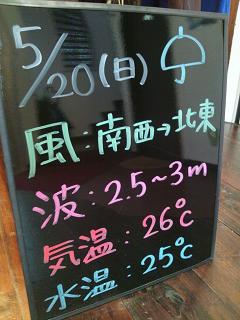 5/20(日)
風:南西→北東
波:2.5~3m
気温:26℃
水温:25℃